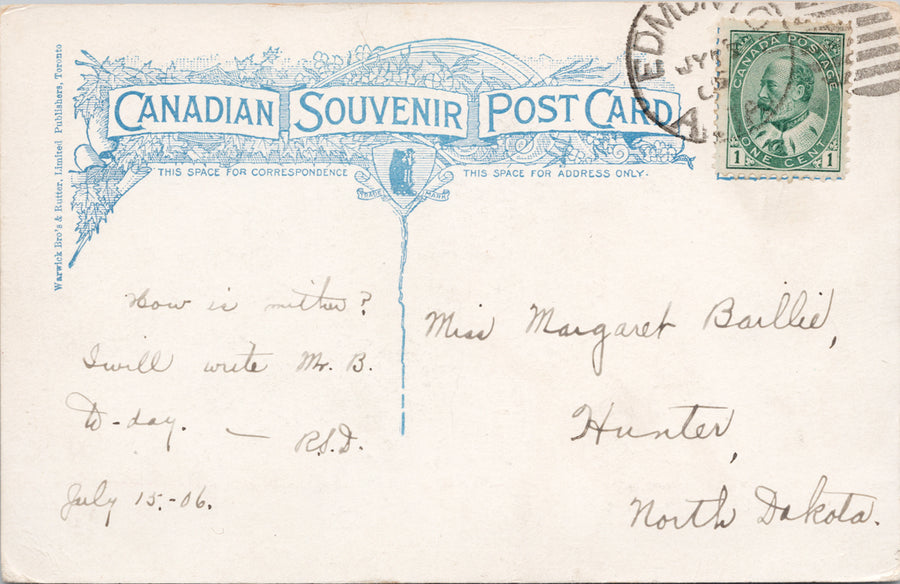 Warwick Bro's & Rutter, Limited Publishers, Toronto
CANADIAN SOUVENIR POST CARD
THIS SPACE FOR CORRESPONDENCE
THIS SPACE FOR ADDRESS ONLY.
TRADE MARK
EDMON
JY
CANADA POSTAGE
1 ONE CENT 1
How is mither?
I will write Mr. B.
to-day. — R.S.D.
July 15.-06.
Miss Margaret Baillie,
Hunter,
North Dakota.